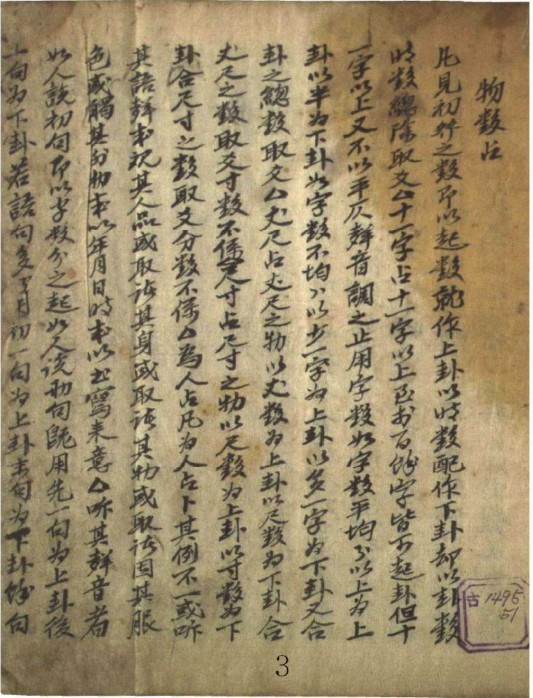 物数占
凡見初升之数即以起数就作上卦以时数配作下卦却以卦数
时数總除取爻△十一字占十一字以上至於百餘字皆可起卦但十
一字以上又不以平仄聲音調之止用字数如字数平均分以上为上
卦以半为下卦如字数不均以少一字为上卦以多一字为下卦又合
卦之總数取爻△丈尺占丈尺之物以丈数为上卦以尺数为下卦合
丈尺之数取爻寸数不係尺寸占尺寸之物以尺数为上卦以寸数为下
卦合尺寸之数取爻分数不係△為人占凡为人占卜其例不一或听
其語聲或視其人品或取諸其身或取諸其物或取諸因其服
色或觸其外物或以年月日时或以出寫来意△听其聲音者
如人說初句即以字数分之起如人说两句既用先一句为上卦後
一句为下卦若語句多用初一句为上卦末句为下卦餘句
古 1495
51
3